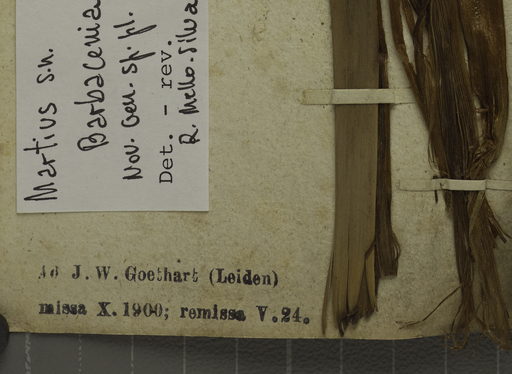 Martius s.n.
Barbacenia
Nov. Gen. Sp. pl.
Det. - rev.
R. Mello-Silva
Ad J. W. Goethart (Leiden)
missa X. 1900; remissa V. 24.